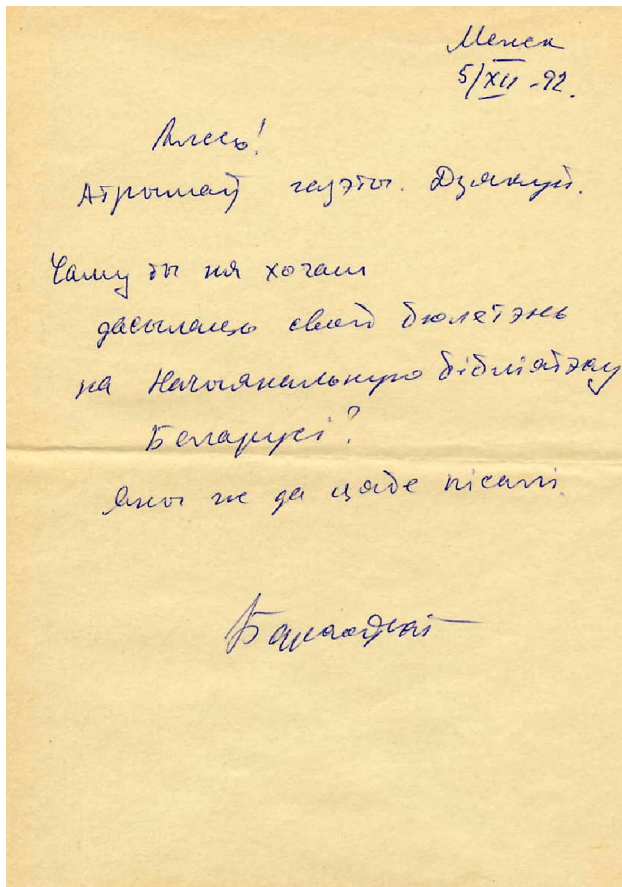 Менск
5/XII-92.
Алесь!
Атрымаў газэты. Дзякуй.
Чаму ты ня хочаш
дасылаць свой бюлетэнь
на Нацыянальную бібліятэку
Беларусі?
Яны ж да цябе пісалі.